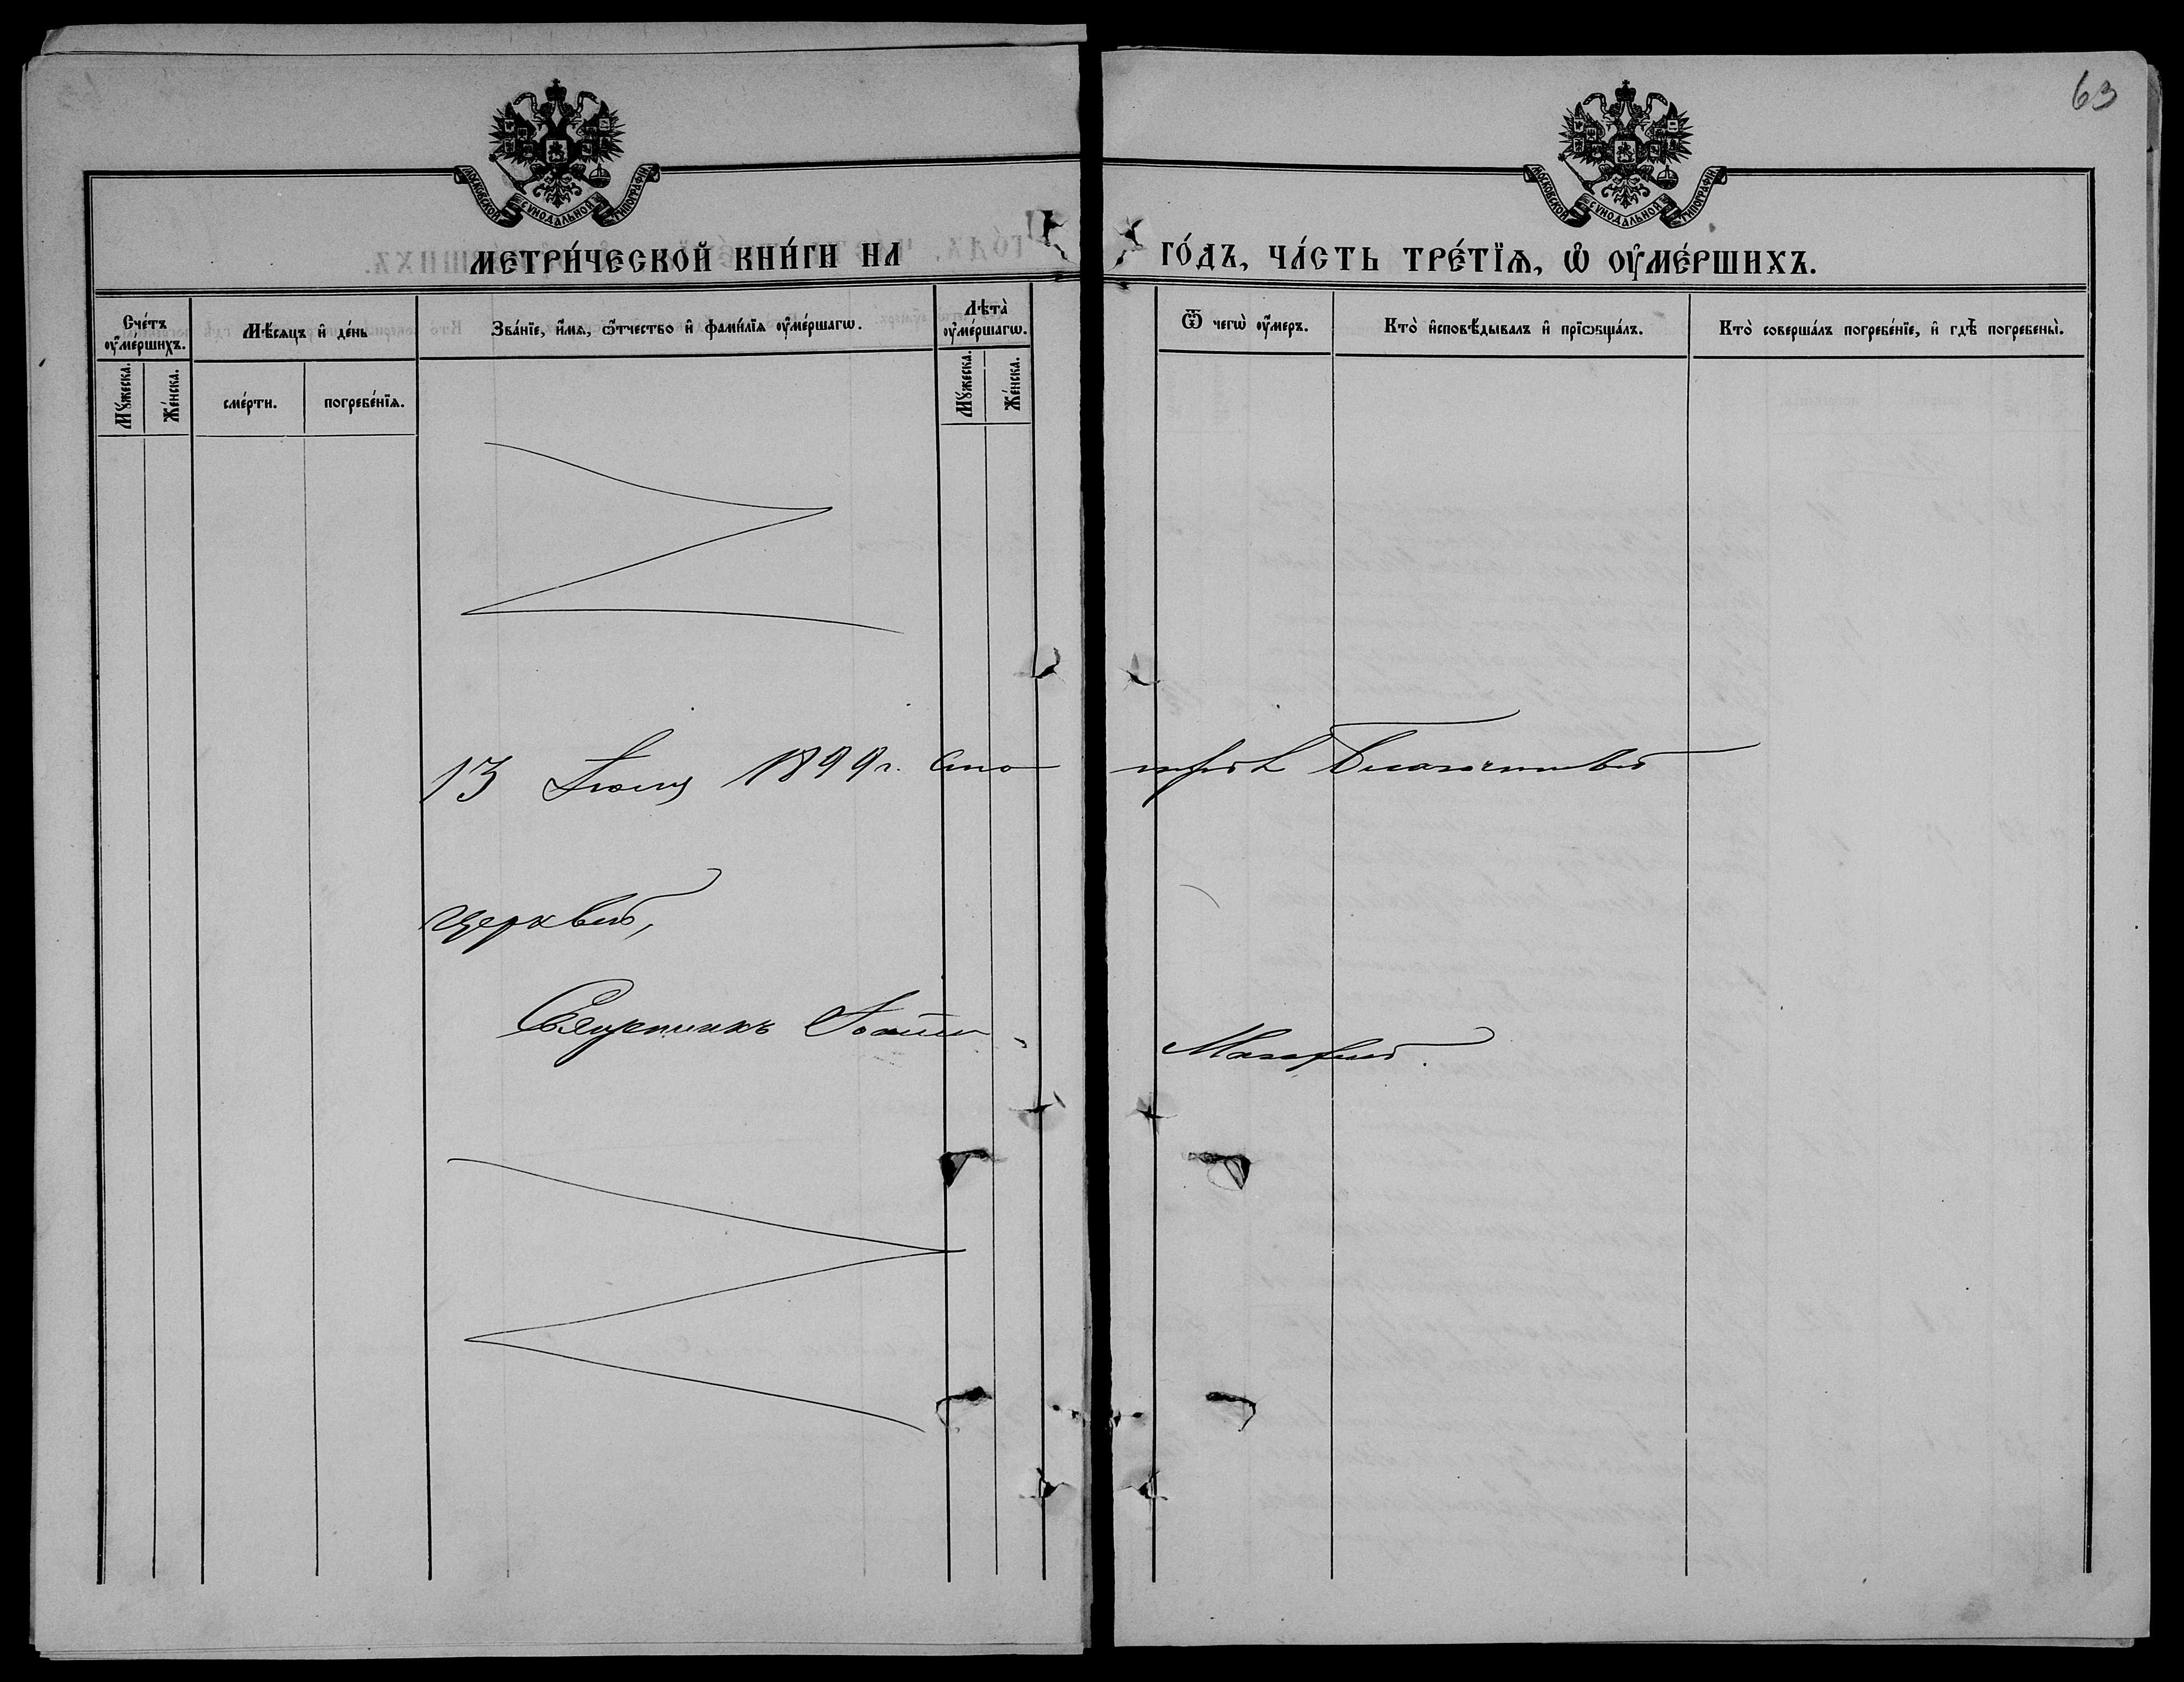 63
МОСКОВСКОЙ СѴНОДАЛЬНОЙ ТИПОГРАФІИ
МОСКОВСКОЙ СѴНОДАЛЬНОЙ ТИПОГРАФІИ
МЕТРИ́ЧЕСКОЙ КНИ́ГИ НА ГО́ДЪ, ЧА́СТЬ ТРЕ́ТЇѦ, Ѡ҆ ОУ҆МЕ́РШИХЪ.
Сче́тъ оу҆ме́ршихъ.
Мѣ́сѧцъ и҆ де́нь
Зва́нїе, и҆́мѧ, ѻ҆́тчество и҆ фами́лїѧ оу҆ме́ршагѡ.
Лѣта̀ оу҆ме́ршагѡ.
Ѿ чегѡ̀ оу҆́меръ.
Кто̀ и҆сповѣ́дывалъ и҆ прїѡбща́лъ.
Кто̀ соверша́лъ погребе́нїе, и҆ гдѣ̀ погребены̀.
Мꙋ́жеска.
Же́нска.
сме́рти.
погребе́нїѧ.
Мꙋ́жеска.
Же́нска.
13 Іюля 1899 г.
церквей,
Священникъ Іоаннъ